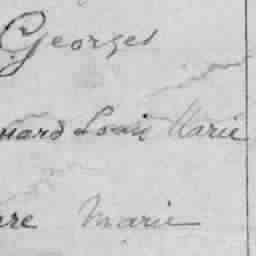 Georges
nard Louis Marie
re Marie